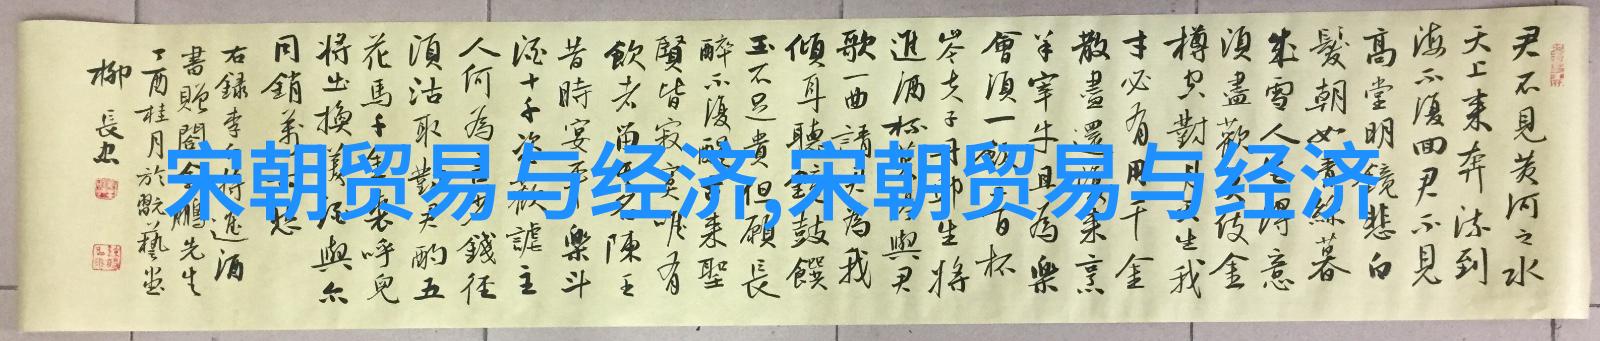 君不見黃河之水
天上来奔流到
海不復回君不見
高堂明鏡悲白
髮朝如青絲暮
成雪人生得意
須盡歡莫使金
樽空對月天生我
才必有用千金
散盡還復来烹
羊宰牛且為樂
會須一飲三百杯
岑夫子丹邱生將
進酒杯莫停與君
歌一曲請君為我
傾耳聽鐘鼓饌
玉不足貴但願長
醉不復醒古来聖
賢皆寂寞唯有
飲者留其名陳王
昔時宴平樂斗
酒十千恣歡謔主
人何為言少錢徑
須沽取對君酌五
花馬千金裘呼兒
將出換美酒與尔
同銷萬古愁
右録李白將進酒
書贈閻金鵬先生
丁酉桂月於翫藝堂
柳長忠
宋朝贸易与经济,宋朝贸易与经济